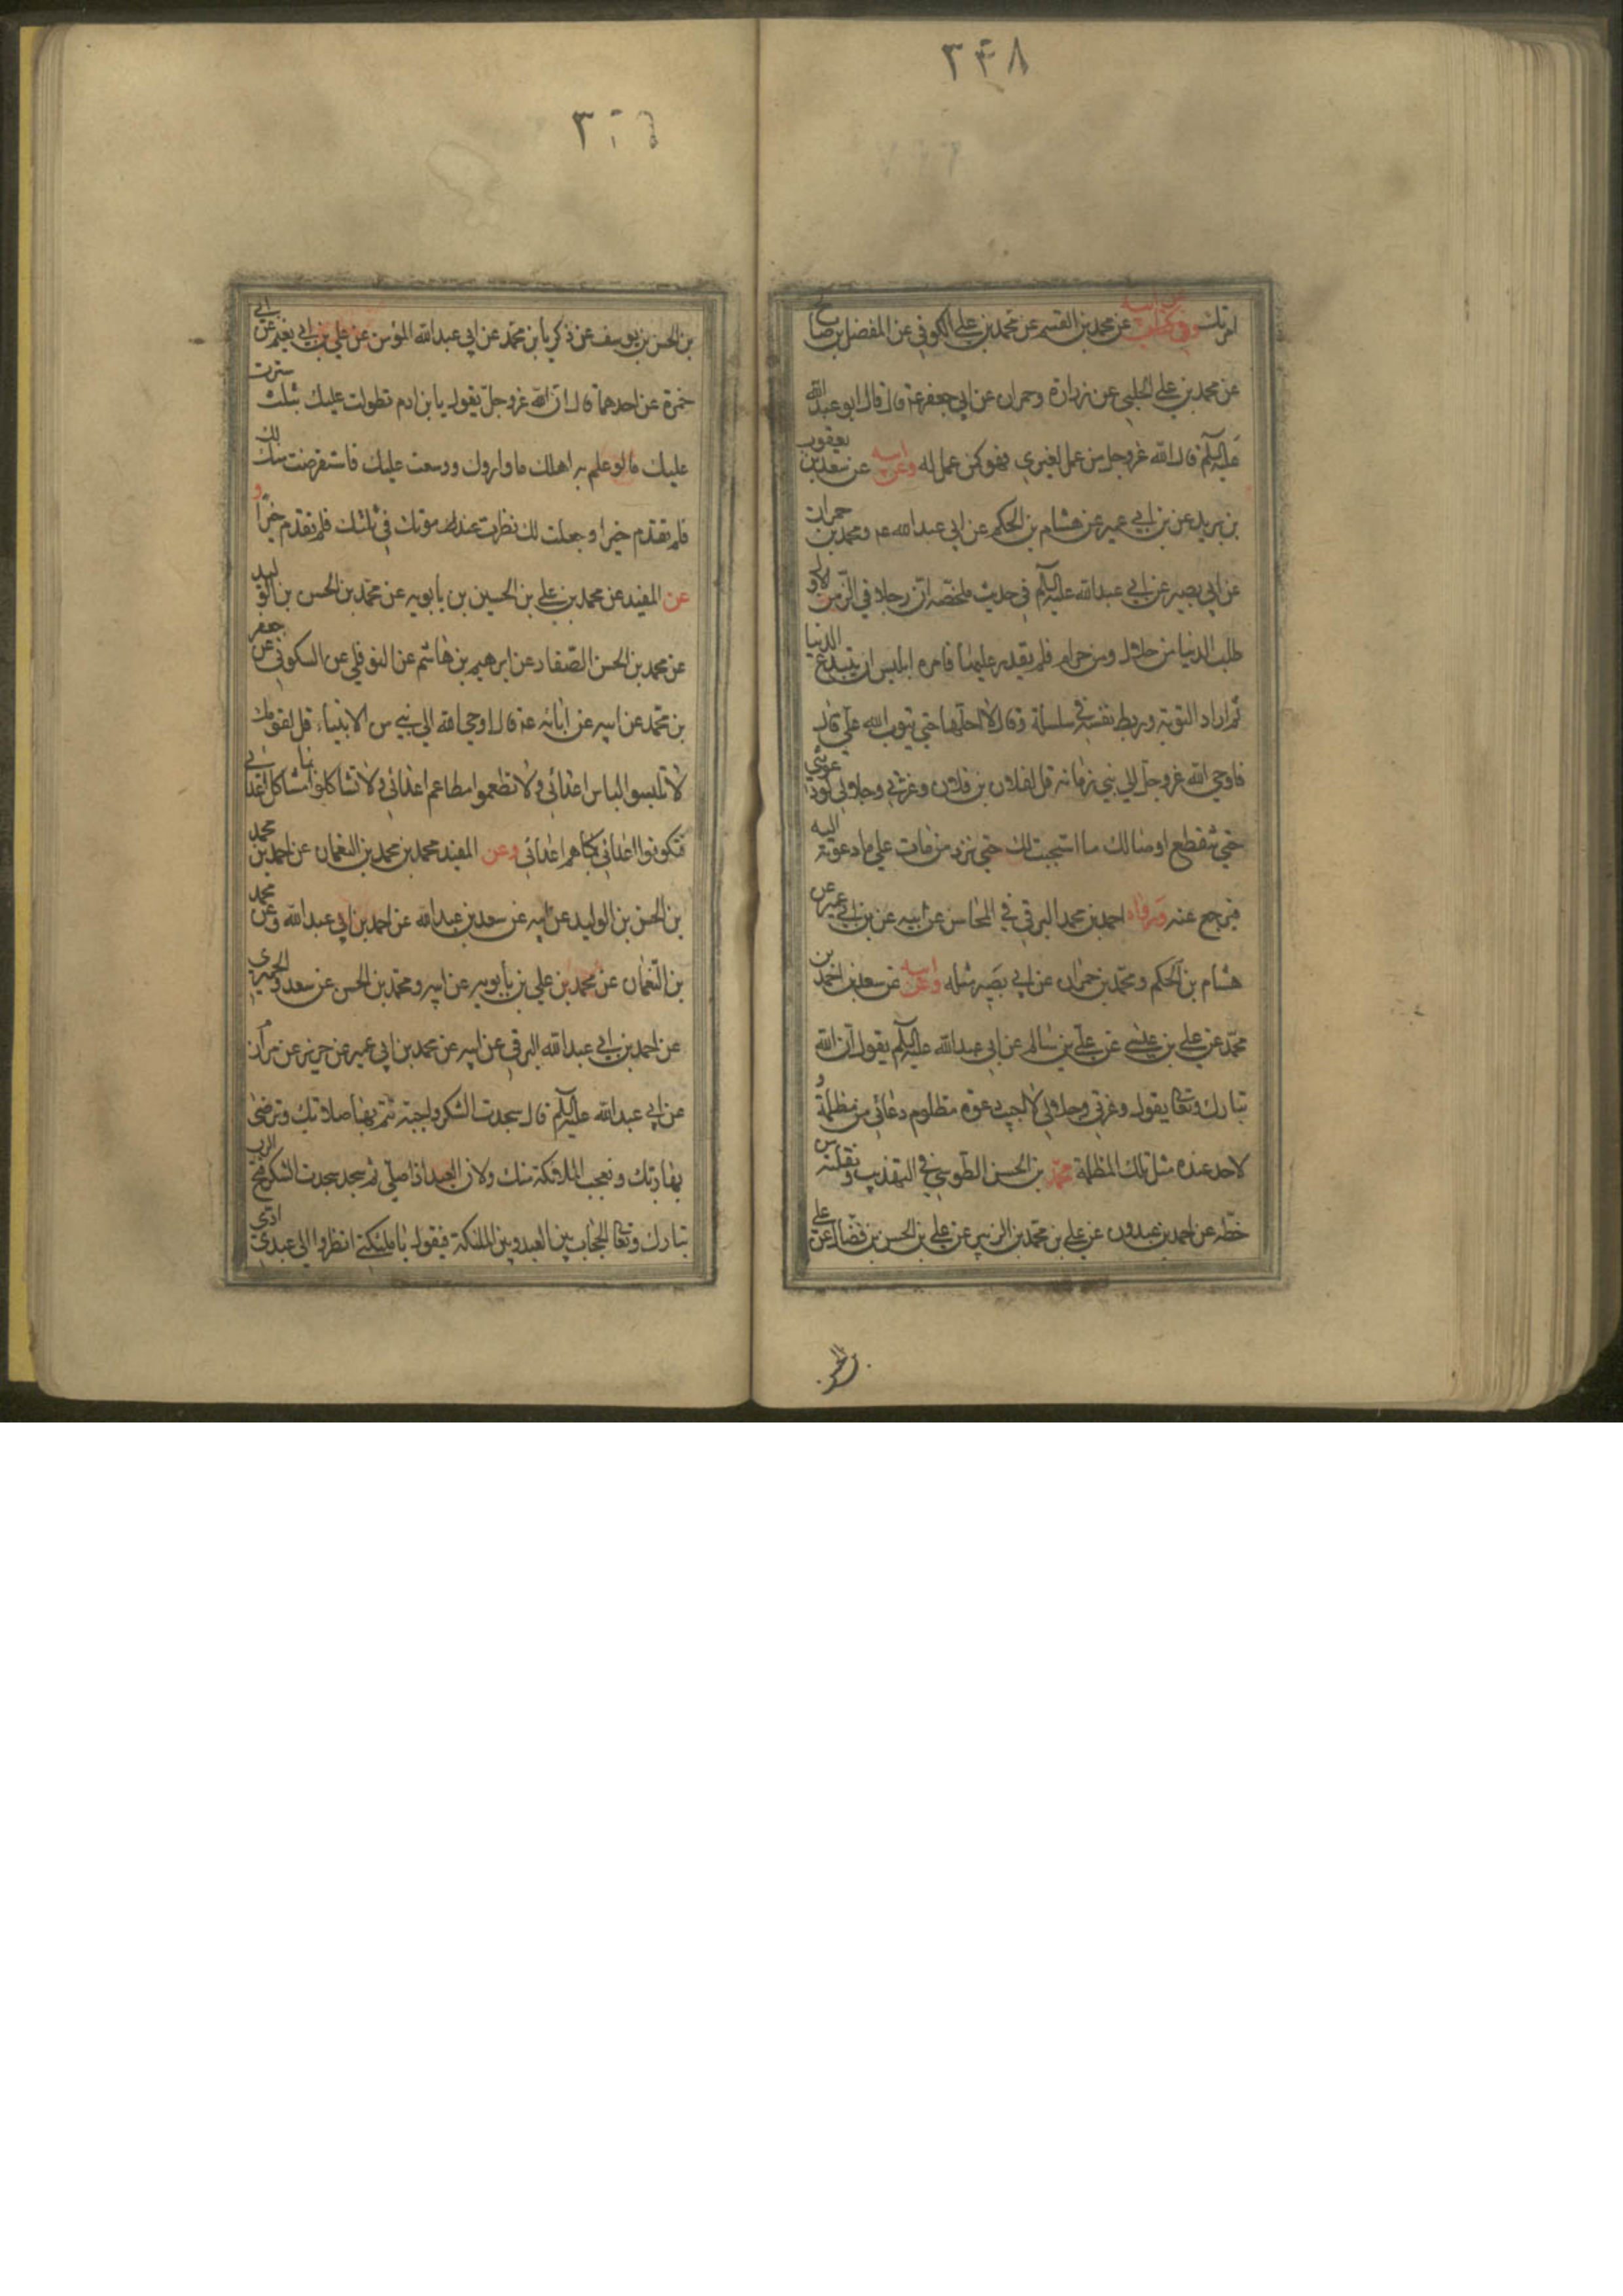 ٣٤٨
امرتك وفي عن ابيه عن محمد بن القسم عن محمد بن علي الكوفي عن المفضل بن صالح
عن محمد بن علي الحلبي عن زرارة وحمران عن ابي جعفر ع قال قال ابو عبد الله
عليه السلم قال الله عز وجل من عمل لغيري فهو كمن عمل له وعن ابيه عن سعد بن يعقوب
بن يزيد عن بن ابي عمير عن هشام بن الحكم عن ابي عبد الله ع ومحمد بن حمران
عن ابي بصير عن ابي عبد الله عليه السلم في حديث ملخصه ان رجلا في الزمن الاول
طلب الدنيا من حلال ومن حرام فلم يقدر عليها فامره ابليس ان يبتدع
ثم اراد التوبة وربط نفسه في سلسلة وقال لا احلها حتى يتوب الله علي قال
فاوحى الله عز وجل الى نبي زمانه قل لفلان بن فلان وعزتي وجلالي لو دعوتني
حتى تنقطع اوصالك ما استجبت لك حتى ترد من مات على ما دعوته اليه
فيرجع عنه ورواه احمد بن محمد البرقي في المحاسن عن ابيه عن بن ابي عمير عن
هشام بن الحكم ومحمد بن حمران عن ابي بصير مثله وعن ابيه عن سعد بن احمد بن
محمد عن علي بن عيسى عن علي بن سالم عن ابي عبد الله عليه السلم يقول ان الله
تبارك وتعا يقول وعزتي وجلالي لا اجيب دعوة مظلوم دعاني من مظلمة و
لاحد عنده مثل تلك المظلمة محمد بن الحسن الطوسي في التهذيب ونقلته من
خطه عن احمد بن عبدون عن علي بن محمد بن الزبير عن علي بن الحسن بن فضال عن علي
بن الحسن بن يوسف عن زكريا بن محمد عن ابي عبد الله المؤمن عن علي بن ابي نعيم عن ابي
حمزة عن احدهما قال ان الله عز وجل يقول يا بن ادم تطولت عليك بثلث سترت
عليك ما لو علم به اهلك ما واروك ووسعت عليك فاستقرضت منك لك
فلم تقدم خيرا وجعلت لك نظرت عند موتك في ثلثك فلم تقدم خيرا و
عن المفيد عن محمد بن علي بن الحسين بن بابويه عن محمد بن الحسن بن الوليد
عن محمد بن الحسن الصفار عن ابرهيم بن هاشم عن النوفلي عن السكوني عن جعفر
بن محمد عن ابيه عن ابائه ع قال اوحى الله الى نبي من الانبياء قل لقومك
لا تلبسوا لباس اعدائي ولا تطعموا مطاعم اعدائي ولا تشاكلوا مشاكل اعدائي
فتكونوا اعدائي كما هم اعدائي وعن المفيد محمد بن محمد بن النعمان عن احمد بن محمد
بن الحسن بن الوليد عن ابيه عن سعد بن عبد الله عن احمد بن ابي عبد الله وعن محمد
بن النعمان عن محمد بن علي بن بابويه عن ابيه ومحمد بن الحسن عن سعد والحميري
عن احمد بن ابي عبد الله البرقي عن ابيه عن محمد بن ابي عمير عن حريز عن مرازم
عن ابي عبد الله عليه السلم قال سجدت الشكر واجبة تتم بها صلاتك وترضى
بها ربك وتعجب الملائكة منك ولان العبد اذا صلى ثم سجد سجدت الشكر فتح الرب
تبارك وتعا الحجاب بين العبد وبين الملئكة فيقول يا ملئكتي انظروا الى عبدي ادى